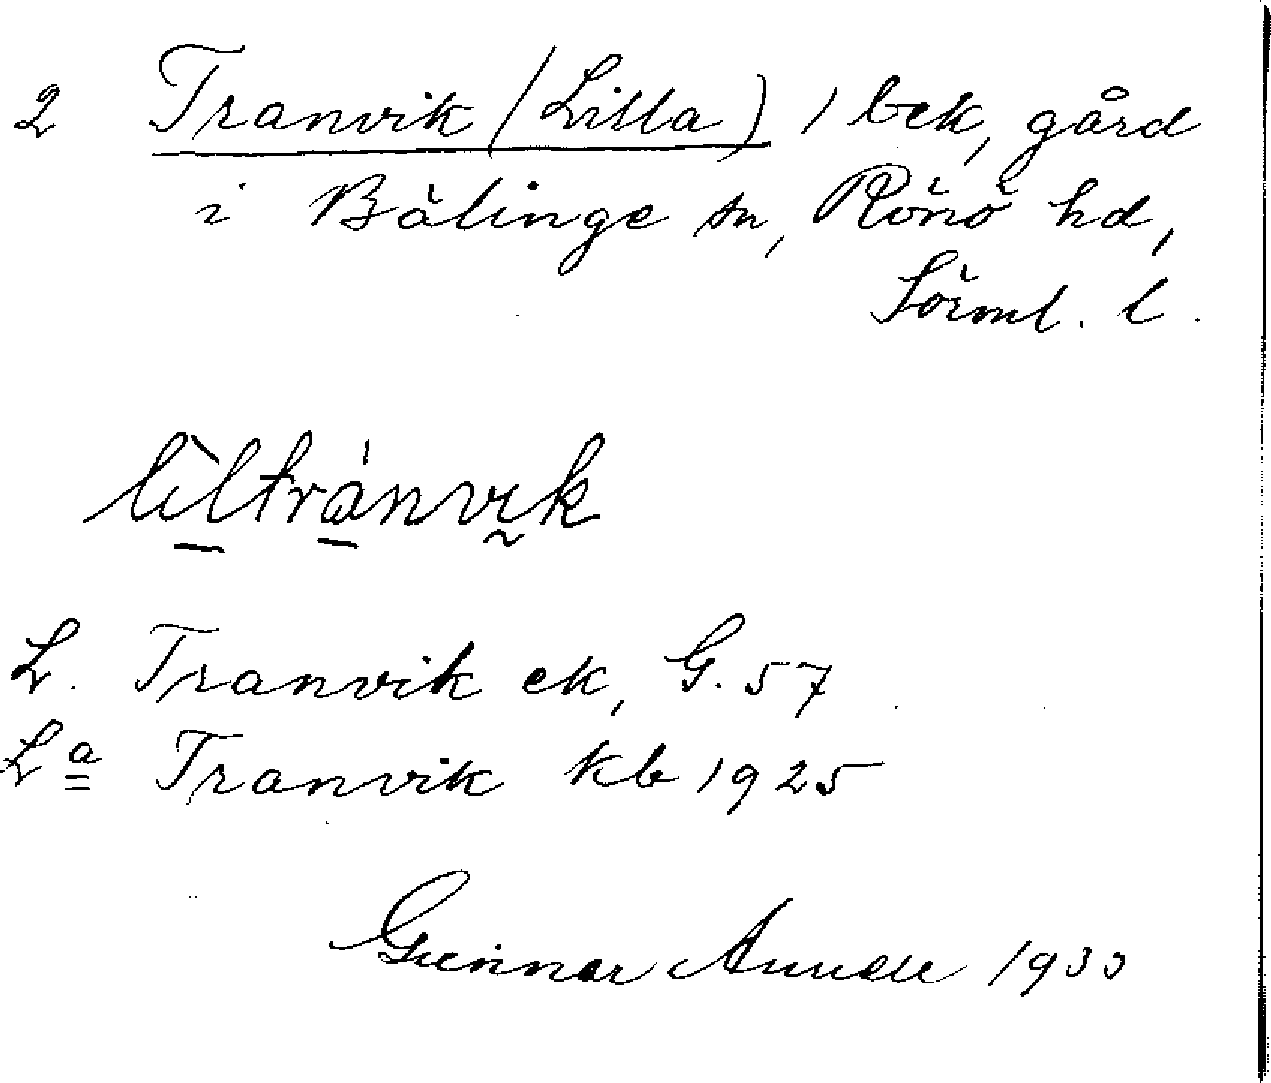 2 Tranvik (Lilla) 1 bek, gård
i Bälinge sn, Rönö hd,
Sörml. l.
lìltránvik
L. Tranvik ek, G. 57
Lª Tranvik kb 1925
Gunnar 1933